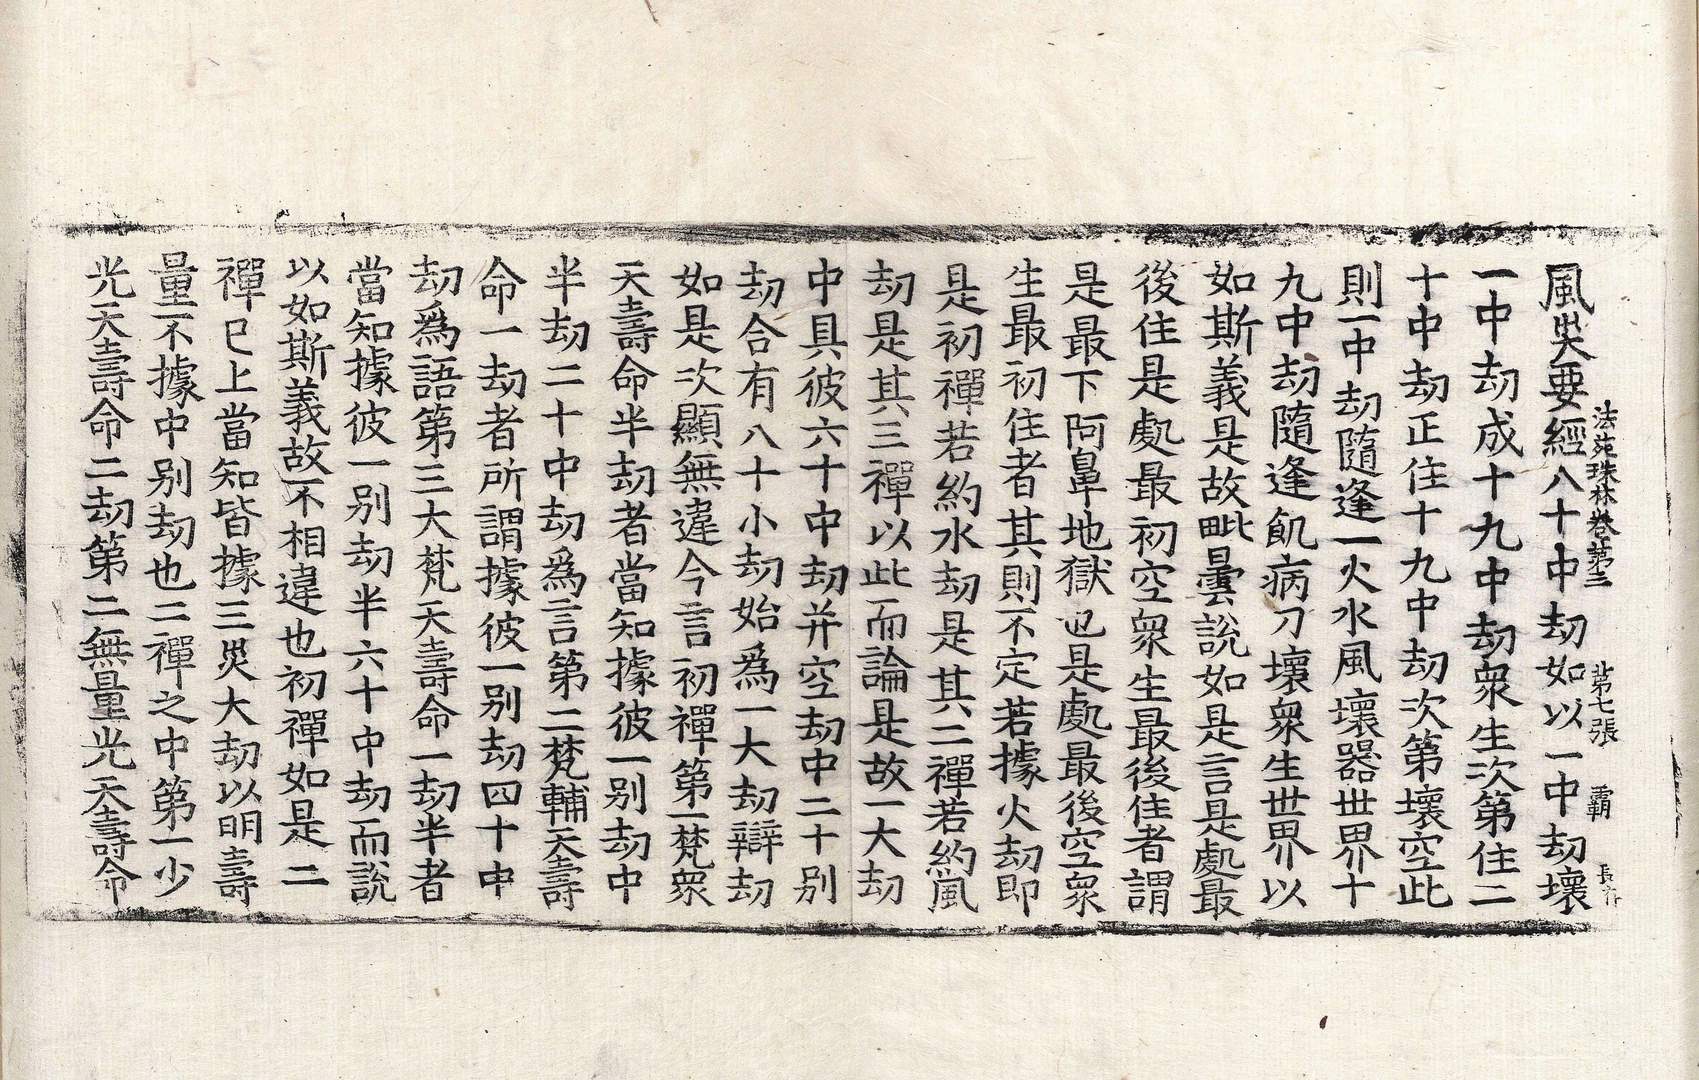 風災要經八十中劫如以一中劫壞
法苑珠林卷第三 第七張 霸
一中劫成十九中劫衆生次第住二
十中劫正住十九中劫次第壞空此
則一中劫隨逢一火水風壞器世界十
九中劫隨逢飢病刀壞衆生世界以
如斯義是故毗曇說如是言是處最
後住是處最初空衆生最後住者謂
是最下阿鼻地獄也是處最後空衆
生最初住者其則不定若據火劫即
是初禪若約水劫是其二禪若約風
劫是其三禪以此而論是故一大劫
中具彼六十中劫并空劫中二十别
劫合有八十小劫始爲一大劫辯劫
如是次顯無違今言初禪第一梵衆
天壽命半劫者當知據彼一别劫中
半劫二十中劫爲言第二梵輔天壽
命一劫者所謂據彼一别劫四十中
劫爲語第三大梵天壽命一劫半者
當知據彼一别劫半六十中劫而說
以如斯義故不相違也初禪如是二
禪已上當知皆據三災大劫以明壽
量不據中别劫也二禪之中第一少
光天壽命二劫第二無量光天壽命